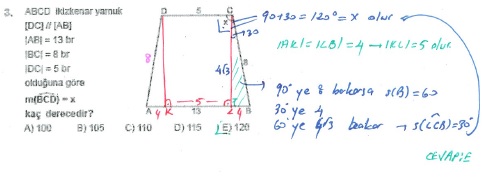 3. ABCD ikizkenar yamuk
[DC] // [AB]
|AB| = 13 br
|BC| = 8 br
|DC| = 5 br
olduğuna göre
m(BCD) = x
kaç derecedir?
A) 100 B) 105 C) 110 D) 115 E) 120
D 5 C
x
30
8
4√3
8
5
A 4 K 13 L 4 B
90+30 = 120° = x olur
|AK| = |LB| = 4 → |KL| = 5 olur.
90° ye 8 bakarsa s(B) = 60
30° ye 4
60° ye 4√3 bakar → s(LCB) = 30°
CEVAP: E